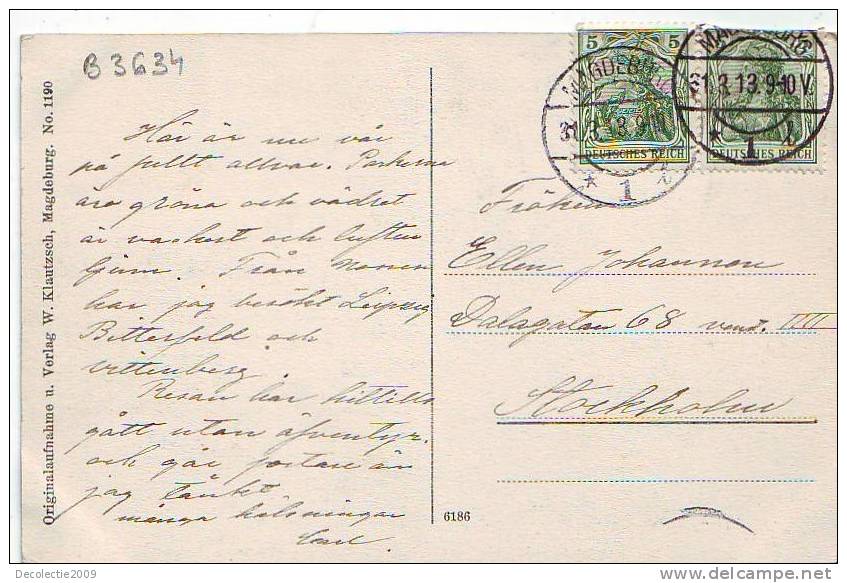 B 3634
Originalaufnahme u. Verlag W. Klautzsch, Magdeburg. No. 1190
Här är nu vår
på fullt allvar. Parkerna
äro gröna och vädret
är vackert och luften
ljum. Från
har jag besökt Leipzig
Bitterfeld och
Vittenberg.
Resan har hittills
gått utan äfventyr.
och går fortare än
jag tänkt
många hälsningar
Carl.
5 5
DEUTSCHES REICH
DEUTSCHES REICH
MAGDEBURG
31.3.13.9-10V.
* 1 l
MAGDEBURG
31.3.13.9-10V.
* 1 l
Fröken
Ellen Johanson
Dalagatan 68
Stockholm
6186
Decolectie2009
delcampe.net